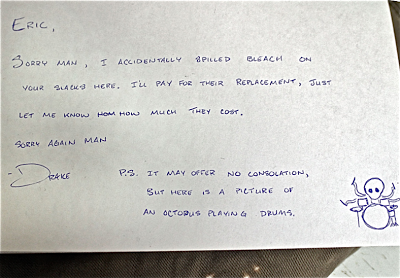 Eric,
Sorry man, I accidentally spilled bleach on
your slacks here. I'll pay for their replacement, just
let me know hom how much they cost.
Sorry again man
-Drake
P.S. It may offer no consolation,
but here is a picture of
an octopus playing drums.